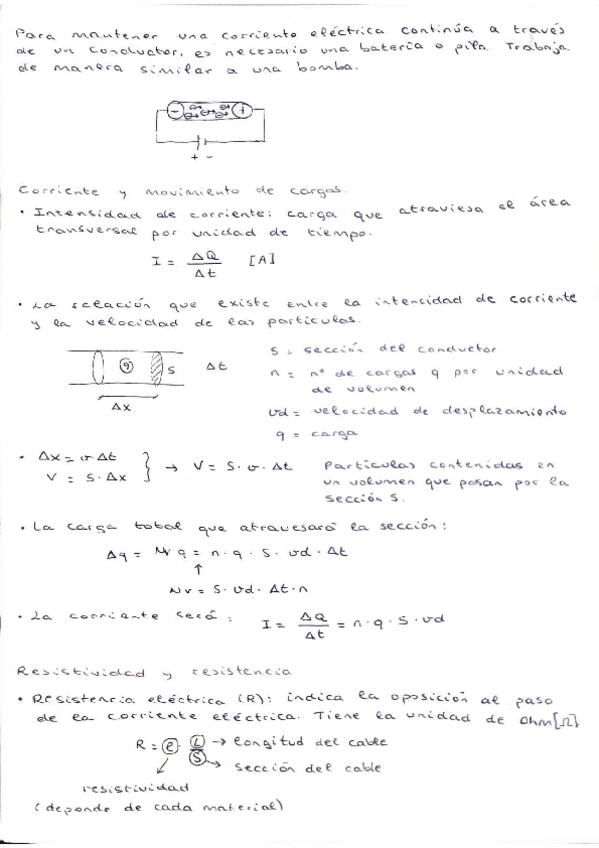 Para mantener una corriente eléctrica continúa a través
de un conductor, es necesario una batería o pila. Trabaja
de manera similar a una bomba.
- +
+ -
Corriente y movimiento de cargas.
• Intensidad de corriente: carga que atraviesa el área
transversal por unidad de tiempo.
I = ΔQ / Δt [A]
• La relación que existe entre la intensidad de corriente
y la velocidad de las partículas.
q S Δt
Δx
S = sección del conductor
n = nº de cargas q por unidad
de volumen
vd = velocidad de desplazamiento
q = carga
• Δx = v·Δt
V = S·Δx } → V = S·v·Δt
Partículas contenidas en
un volumen que pasan por la
sección S.
• La carga total que atravesará la sección:
Δq = Nv q = n·q·S·vd·Δt
↑
Nv = S·vd·Δt·n
• La corriente será: I = ΔQ / Δt = n·q·S·vd
Resistividad y resistencia
• Resistencia eléctrica (R): indica la oposición al paso
de la corriente eléctrica. Tiene la unidad de Ohm [Ω]
R = ρ · L / S
→ longitud del cable
→ sección del cable
resistividad
(depende de cada material)